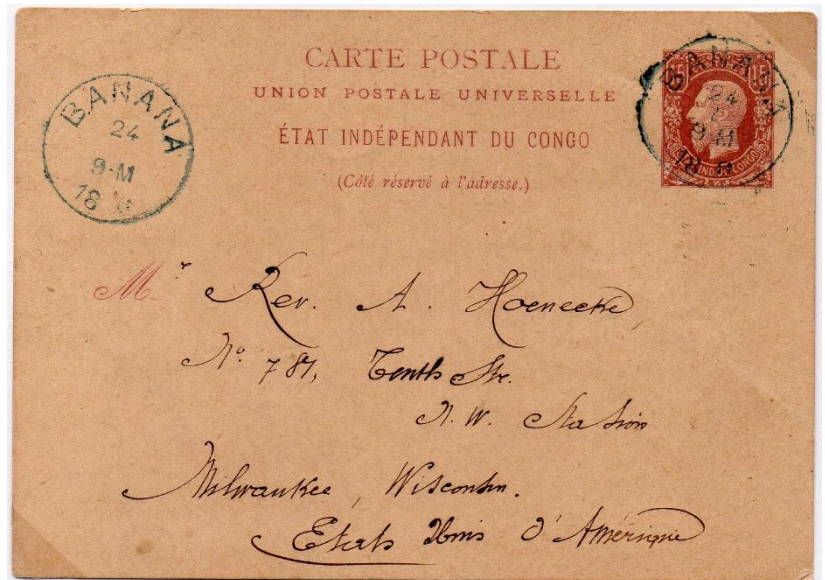 CARTE POSTALE
UNION POSTALE UNIVERSELLE
ÉTAT INDÉPENDANT DU CONGO
(Côté réservé à l'adresse.)
BANANA
24
9-M
18
BANANA
24
9-M
18
M. Rev. A. Hoenecke
No. 787, Tenth Str.
N. W. Station
Milwaukee, Wisconsin.
Etats Unis d'Amérique